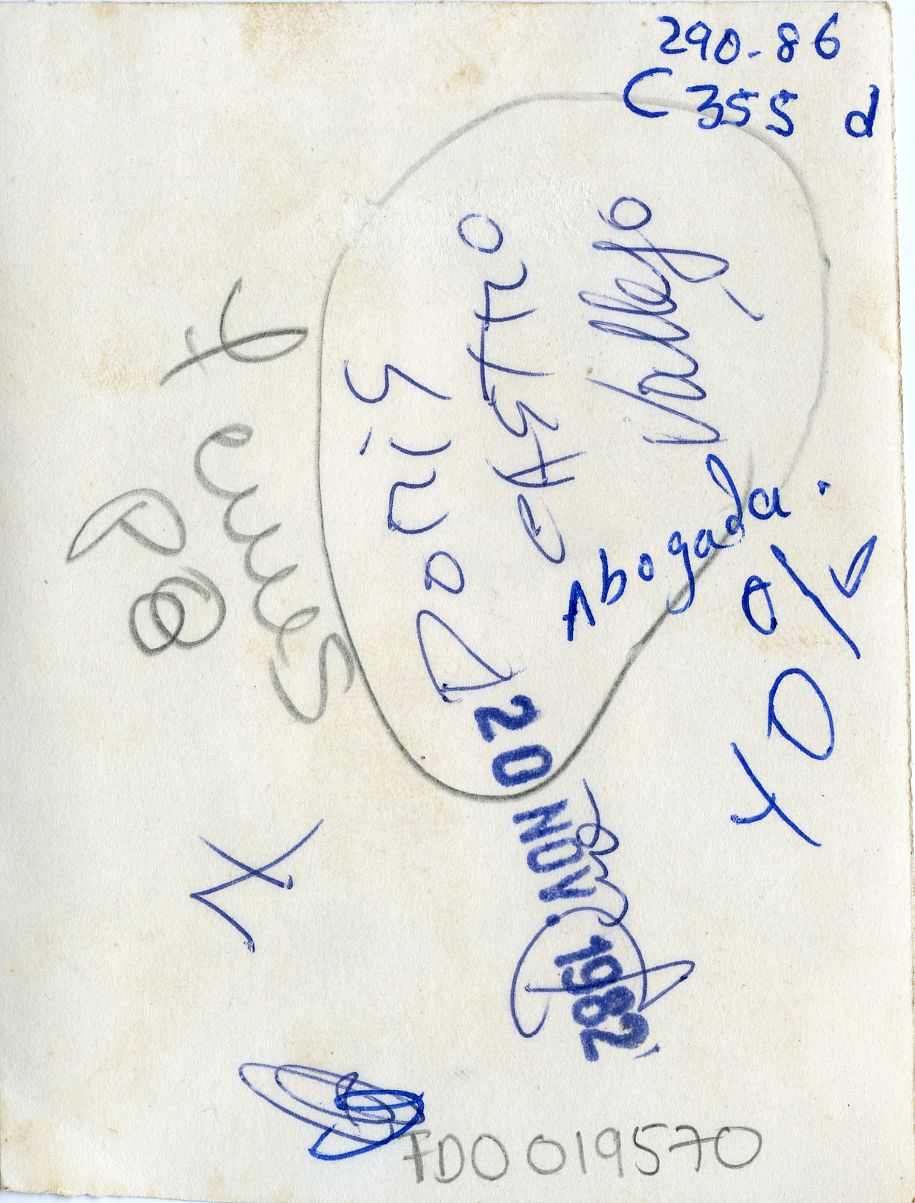 290-86
C355 d
Doris
CASTRO
Vallejo
Abogada.
40%
20 NOV. 1982
FDO 019570